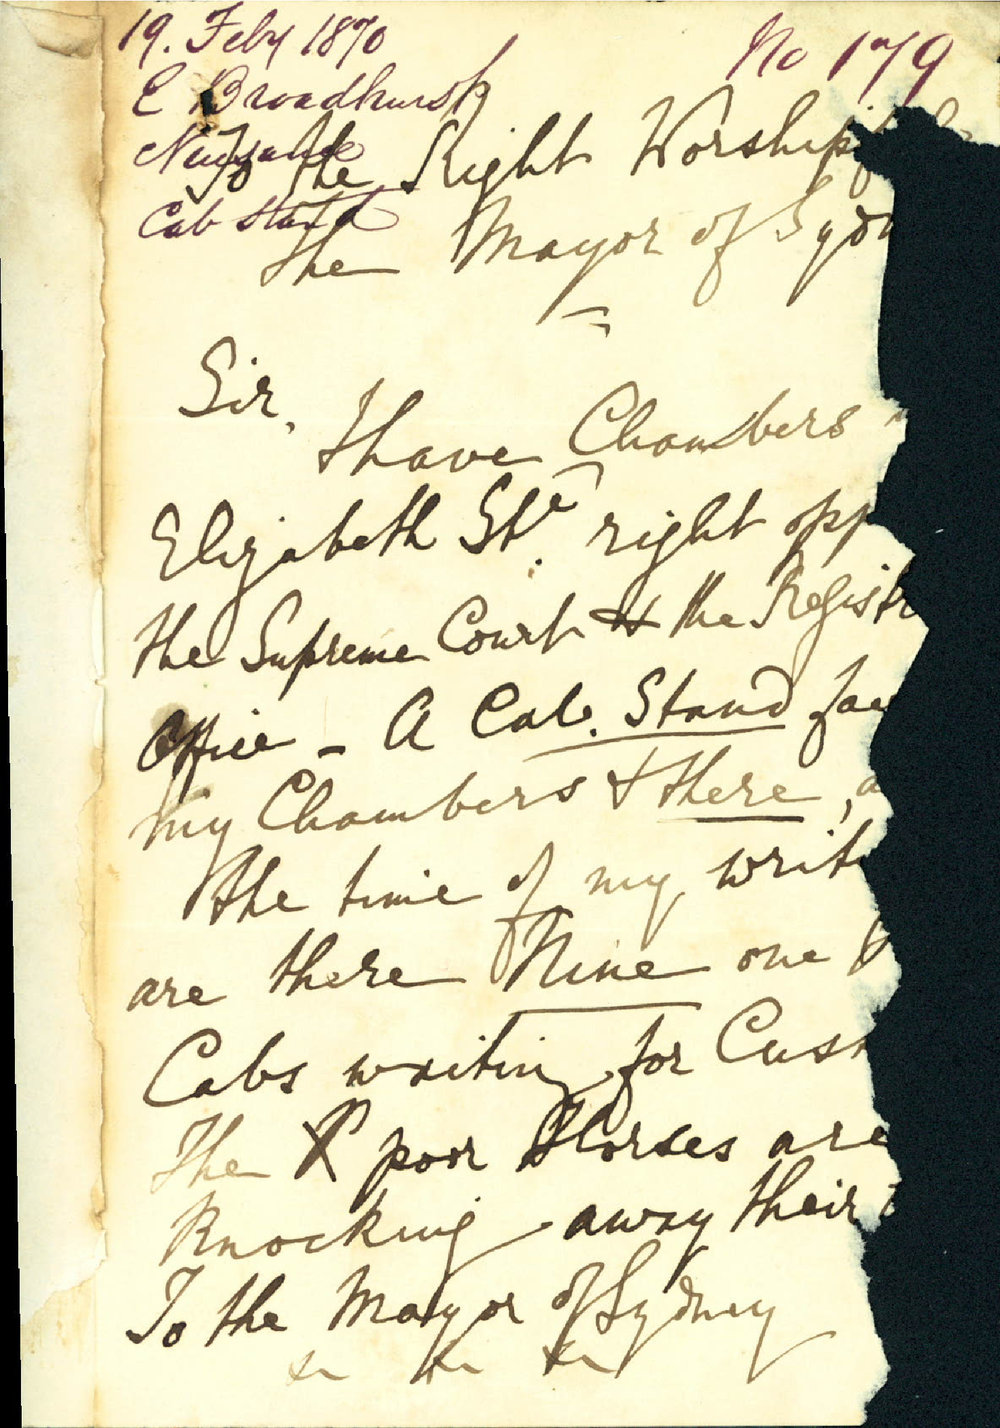 19. Feby 1870
No 179
E Broadhurst
Nuisance
Cab Stand
To the Right Worshipf
The Mayor of Sydn
Sir,
I have Chambers
Elizabeth Ste. right opp
the Supreme Court & the Registr
Office - A Cab. Stand fac
my Chambers & there, a
the time of my writ
are there Nine one
Cabs waiting for Cust
The poor Horses are
Knocking away their
To the Mayor of Sydney
&c &c &c